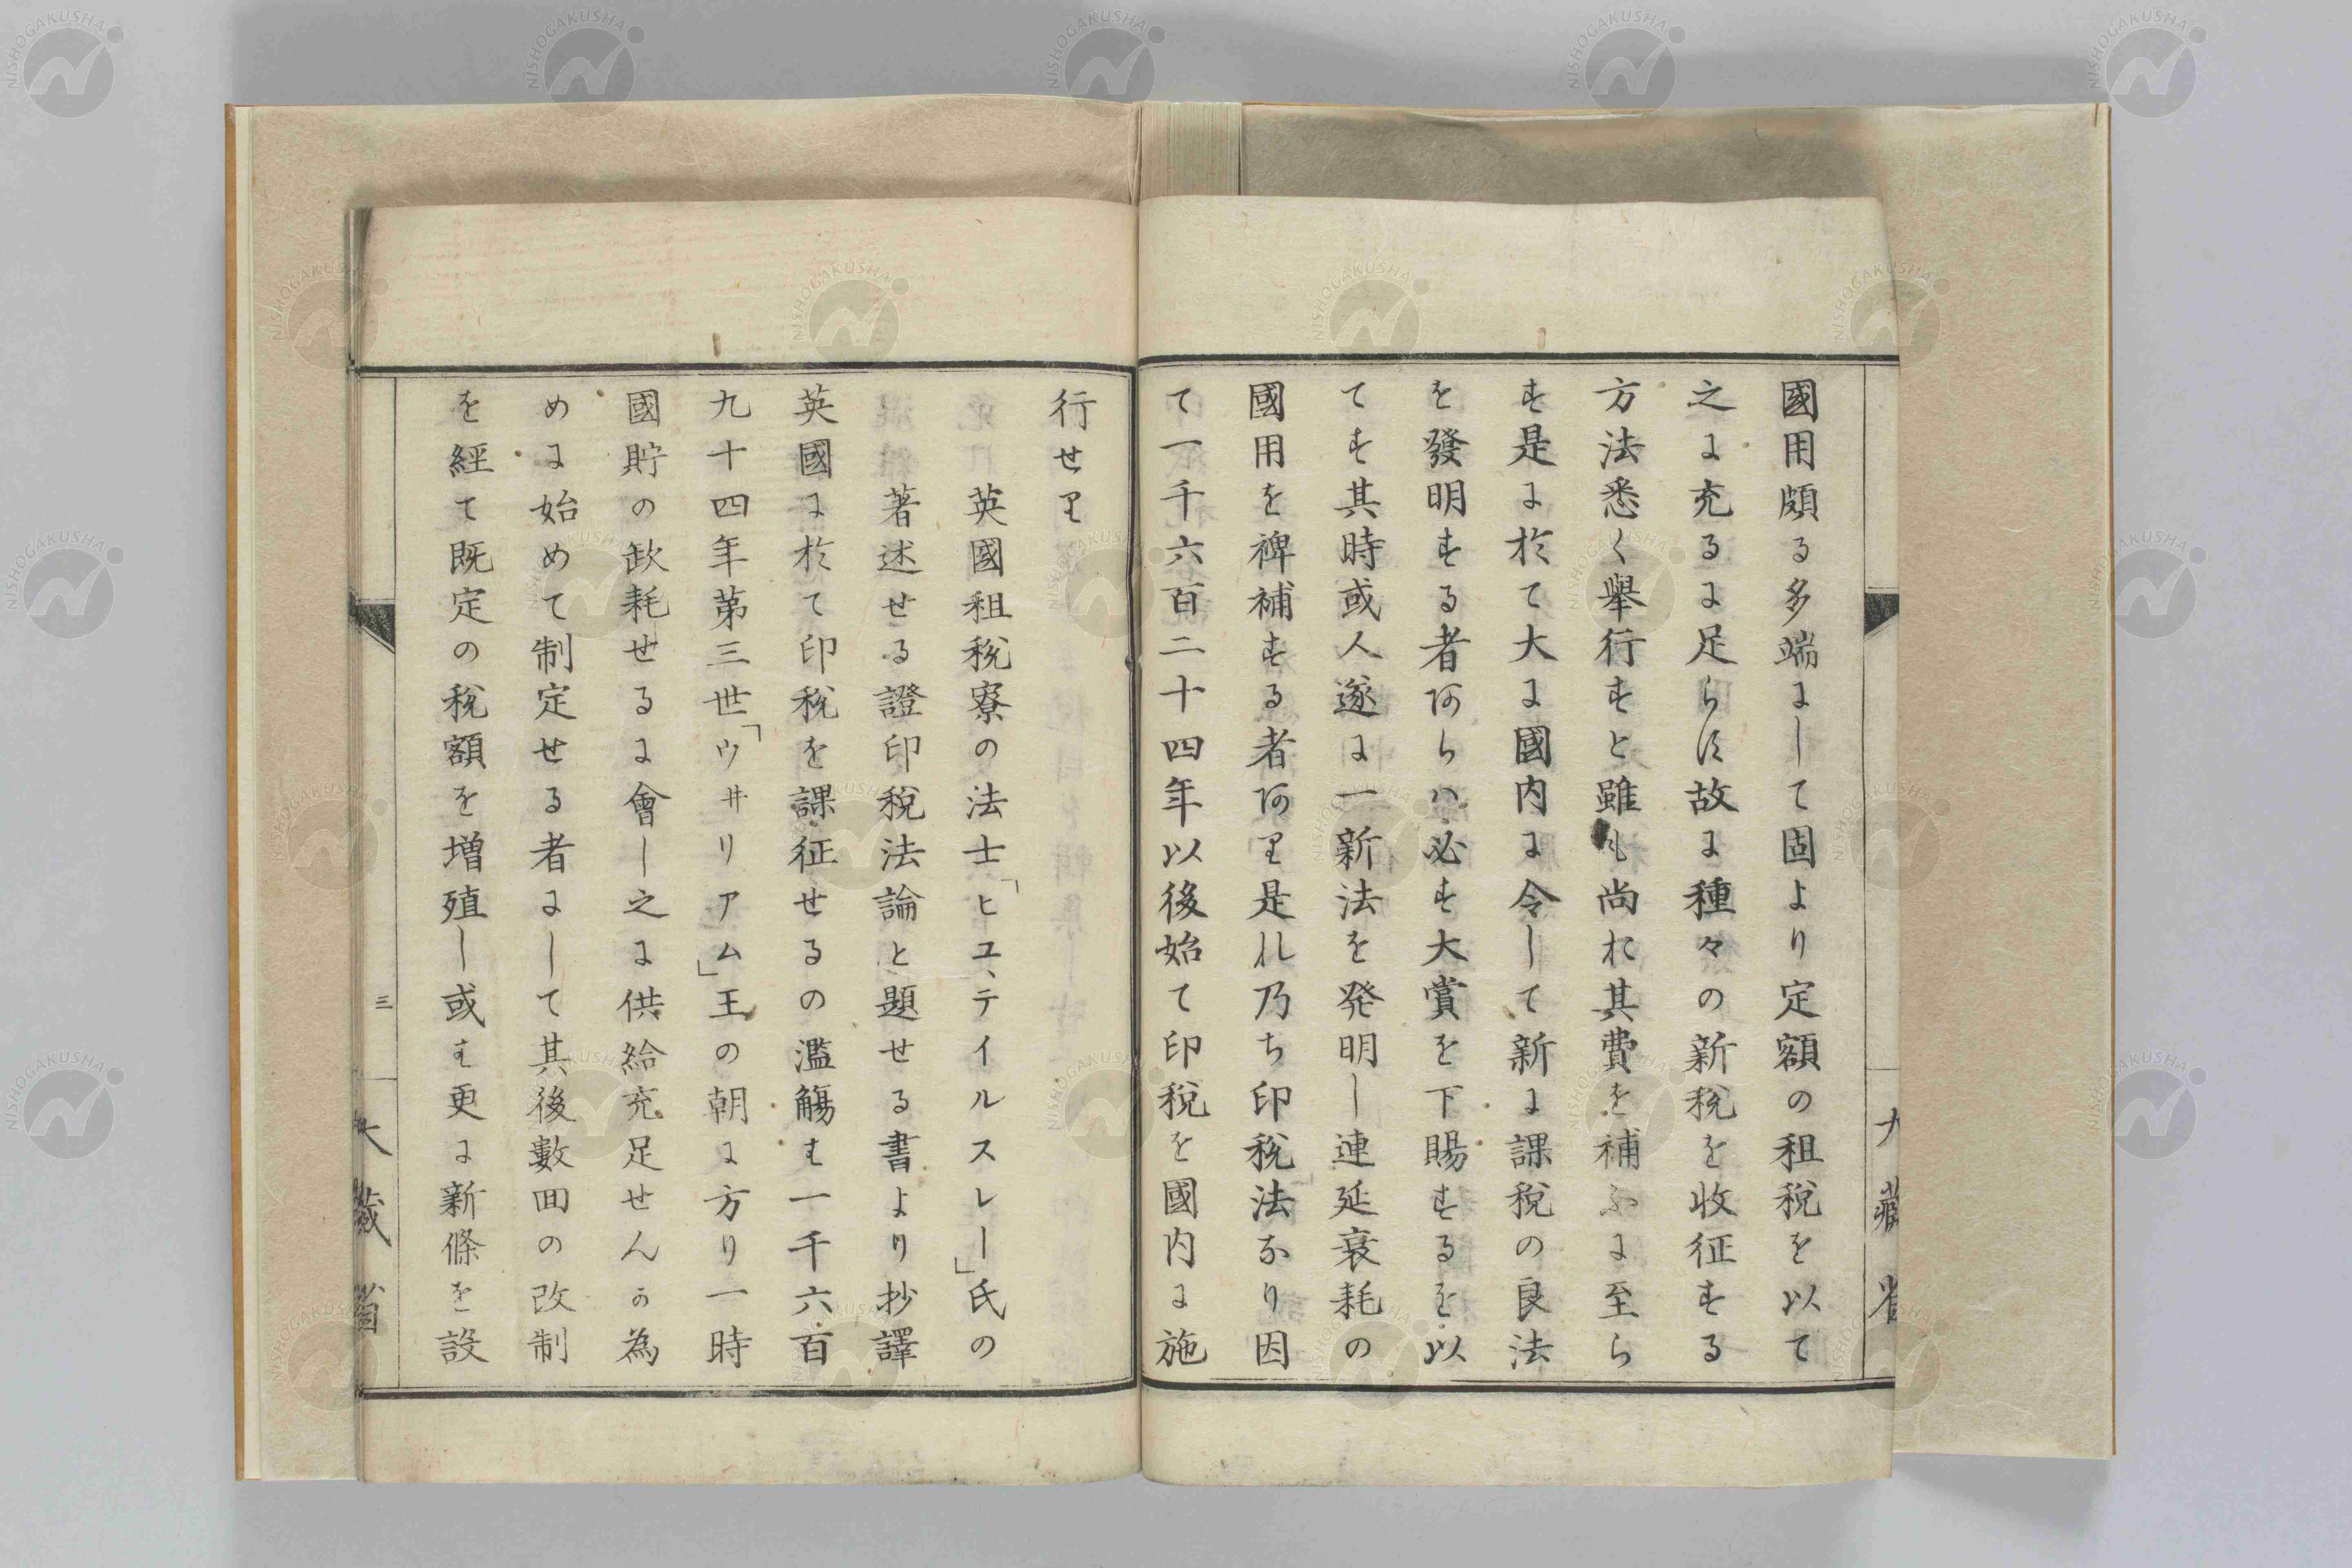 國用頗る多端にして固より定額の租税を以て
之に充るに足らず故に種々の新税を收征する
方法悉く舉行すと雖も尚ほ其費を補ふに至ら
す是に於て大に國内に令して新に課税の良法
を發明する者あらハ必す大賞を下賜するを以
てす其時或人遂に一新法を発明し連延衰耗の
國用を裨補する者あり是れ乃ち印税法なり因
て一千六百二十四年以後始て印税を國内に施
大藏省
行せり
英國租税寮の法士「ヒユ、テイルスレー」氏の
著述せる證印税法論と題せる書より抄譯
英國に於て印税を課征せるの濫觴は一千六百
九十四年第三世「ウヰリアム」王の朝に方り一時
國貯の欽耗せるに會し之に供給充足せんか為
めに始めて制定せる者にして其後數回の改制
を経て既定の税額を増殖し或は更に新條を設
三
大藏省
NISHOGAKUSHA